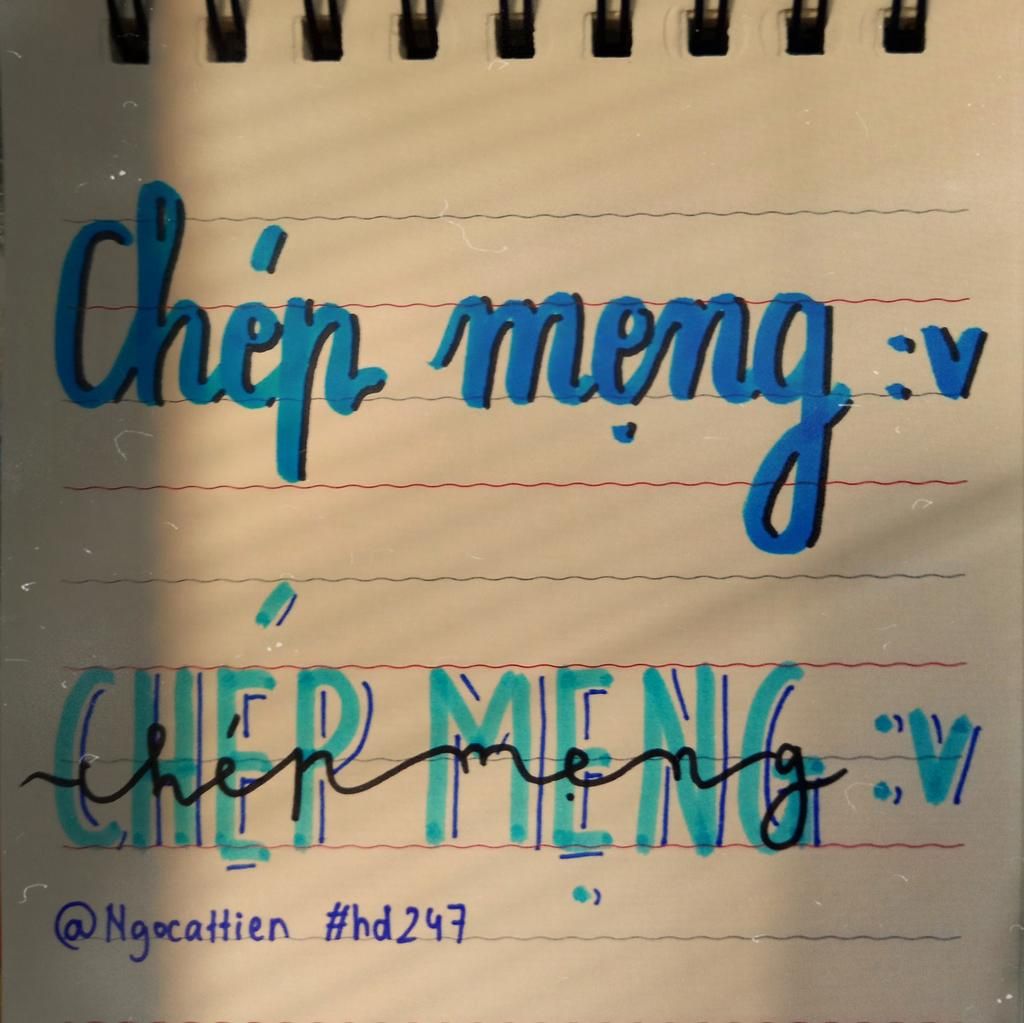 Chép mẹng :v
CHÉP MẸNG :v
chép mẹng
@Ngocattien #hd247